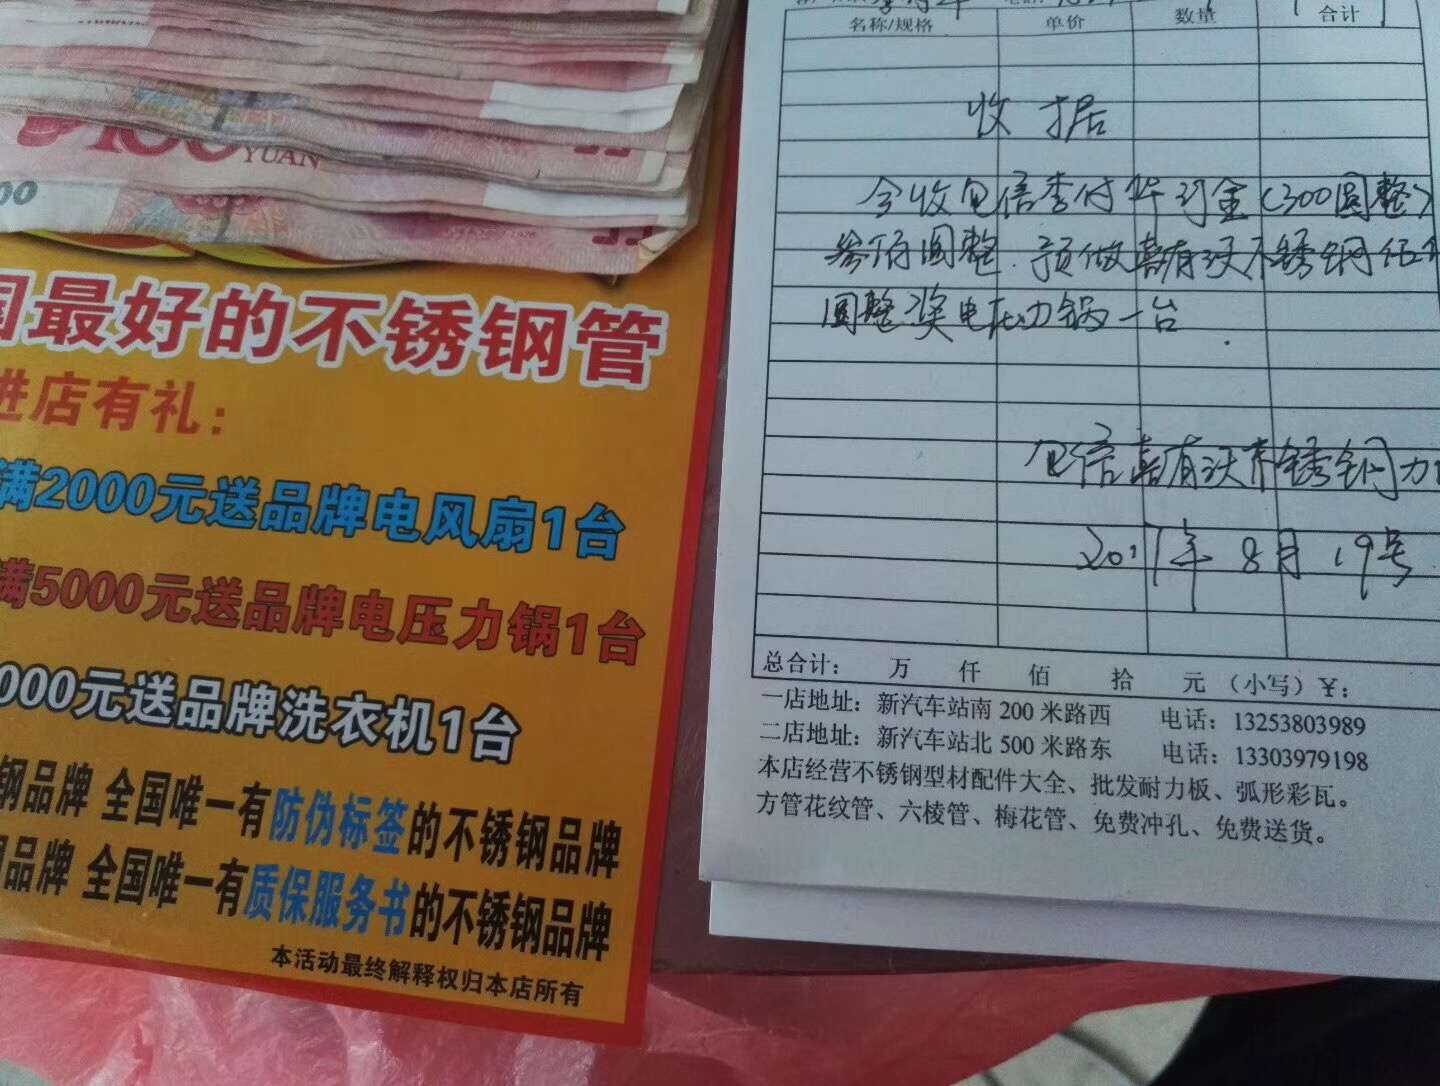 100
YUAN
00
国最好的不锈钢管
进店有礼：
满2000元送品牌电风扇1台
满5000元送品牌电压力锅1台
000元送品牌洗衣机1台
钢品牌 全国唯一有防伪标签的不锈钢品牌
品牌 全国唯一有质保服务书的不锈钢品牌
本活动最终解释权归本店所有
名称/规格 单价 数量 合计
收据
今收电信李付华订金(300圆整)
叁佰圆整.预做喜有沃不锈钢伍仟
圆整奖电压力锅一台.
电信喜有沃不锈钢
2017年8月19号
总合计： 万 仟 佰 拾 元（小写）￥：
一店地址：新汽车站南 200 米路西 电话：13253803989
二店地址：新汽车站北 500 米路东 电话：13303979198
本店经营不锈钢型材配件大全、批发耐力板、弧形彩瓦。
方管花纹管、六棱管、梅花管、免费冲孔、免费送货。